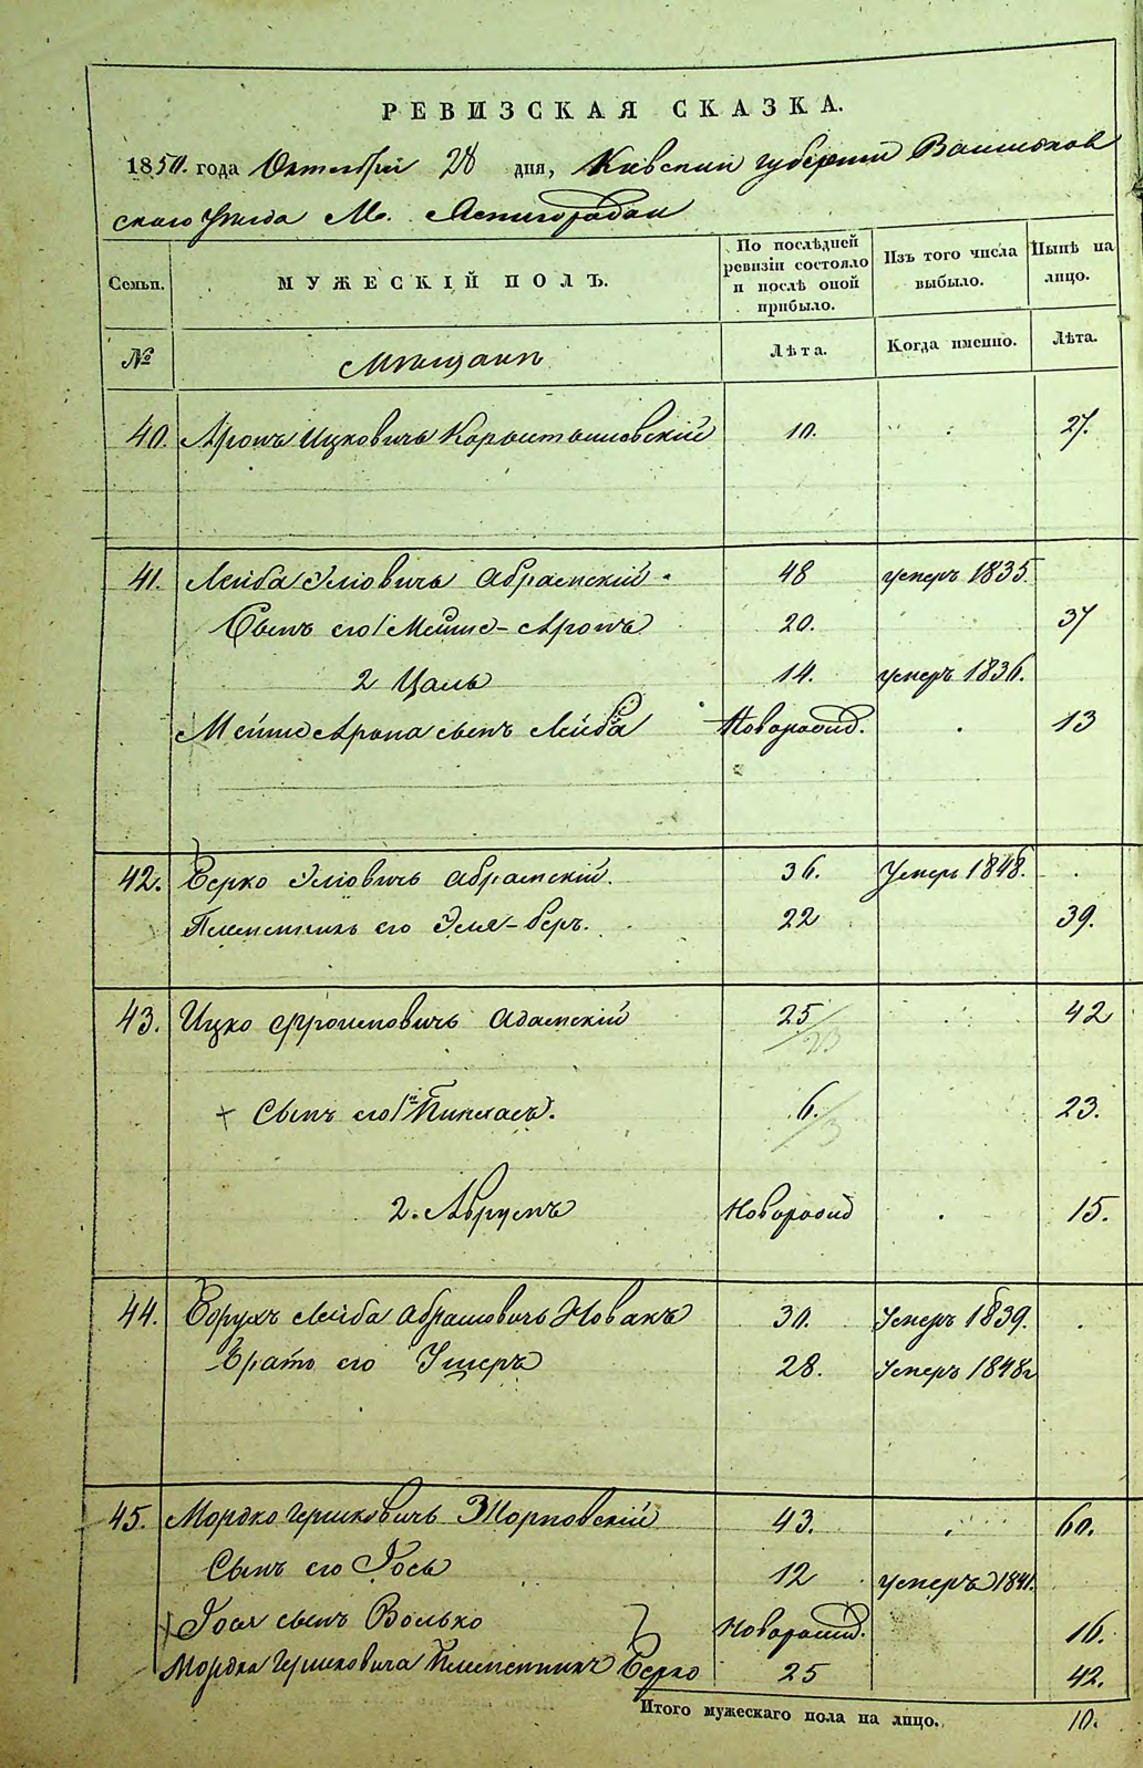 РЕВИЗСКАЯ СКАЗКА.
1850. года Октября 28 дня, Кіевской губерніи Васильков
скаго уѣзда М.
Семьи. МУЖЕСКІЙ ПОЛЪ. По послѣдней ревизіи состояло и послѣ оной прибыло. Изъ того числа выбыло. Нынѣ на лицо.
№ Мѣщане Лѣта. Когда именно. Лѣта.
40. Аронъ Ицковичъ Коростышевскій 10. 27.
41. Лейба Эліовичъ Абрамскій 48 умеръ 1835.
Сынъ его 1 Мейше-Аронъ 20. 37
2 Цаль 14. умеръ 1836.
Мейше Арона сынъ Лейба Новорожд. 13
42. Берко Эліовичъ Абрамскій. 36. Умеръ 1848.
Племянникъ его Эля-беръ. 22 39.
43. Ицко Фроимовичъ Адамскій 25 42
Сынъ его 1й Пинхасъ. 6. 23.
2. Аврумъ Новорожд 15.
44. Борухъ Лейба Абрамовичъ Новакъ 30. Умеръ 1839.
Братъ его Ушеръ 28. Умеръ 1848г
45. Мордко Гершковичъ 43. 60.
Сынъ его Іось 12 умеръ 1841.
Іося сынъ Волько Новорожд. 16.
Мордка Гершковича Племенникъ Берко 25 42.
Итого мужескаго пола на лицо. 10.